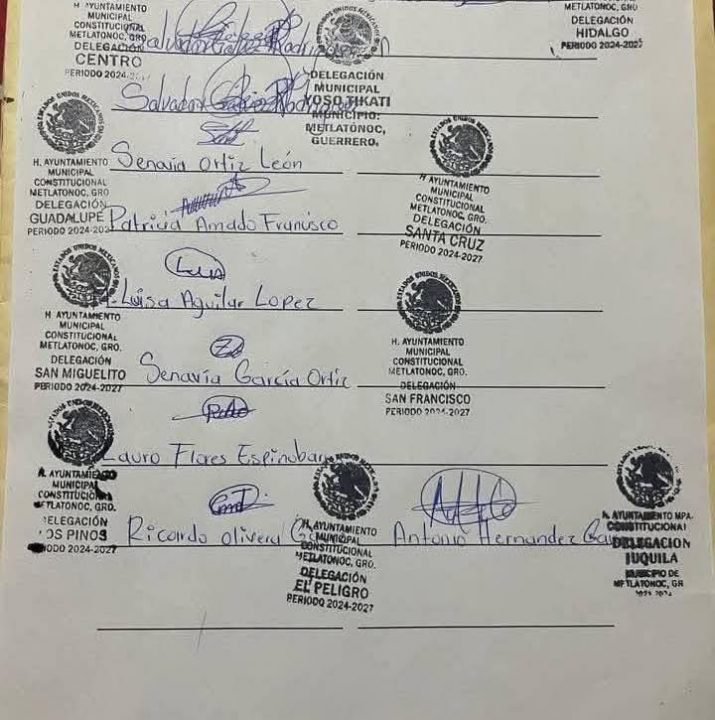 H. AYUNTAMIENTO
MUNICIPAL
CONSTITUCIONAL
METLATONOC, GRO
DELEGACIÓN
CENTRO
PERIODO 2024-
METLATONOC, GRO
DELEGACIÓN
HIDALGO
PERIODO 2024-2027
Salvador
Salvador
DELEGACIÓN
MUNICIPAL
YOSO TIKATI
MUNICIPIO:
METLATÓNOC,
GUERRERO.
ESTADOS UNIDOS MEXICANOS
H. AYUNTAMIENTO
MUNICIPAL
CONSTITUCIONAL
METLATONOC, GRO
DELEGACIÓN
GUADALUPE
PERIODO 2024-202
Senavia Ortiz León
Patricia Amado Francisco
ESTADOS UNIDOS MEXICANOS
H AYUNTAMIENTO
MUNICIPAL
CONSTITUCIONAL
METLATONOC, GRO.
DELEGACIÓN
SANTA CRUZ
PERIODO 2024-2027
ESTADOS UNIDOS MEXICANOS
H AYUNTAMIENTO
MUNICIPAL
CONSTITUCIONAL
METLATONOC, GRO.
DELEGACIÓN
SAN MIGUELITO
PERIODO 2024-2027
Luis
Luisa Aguilar Lopez
Senavia García Ortiz
ESTADOS UNIDOS MEXICANOS
H. AYUNTAMIENTO
MUNICIPAL
CONSTITUCIONAL
METLATONOC, GRO.
DELEGACIÓN
SAN FRANCISCO
PERIODO 2024-2027
H. AYUNTAMIENTO
MUNICIPAL
CONSTITUCIONAL
METLATONOC, GRO.
DELEGACIÓN
LOS PINOS
PERIODO 2024-2027
Lauro Flores Espinobarr
Ricardo Olivera
H. AYUNTAMIENTO
MUNICIPAL
CONSTITUCIONAL
METLATONOC, GRO.
DELEGACIÓN
EL PELIGRO
PERIODO 2024-2027
Antonio Hernandez
H. AYUNTAMIENTO MPAL
CONSTITUCIONAL
DELEGACION
JUQUILA
MUNICIPIO DE
METLATONOC, GR